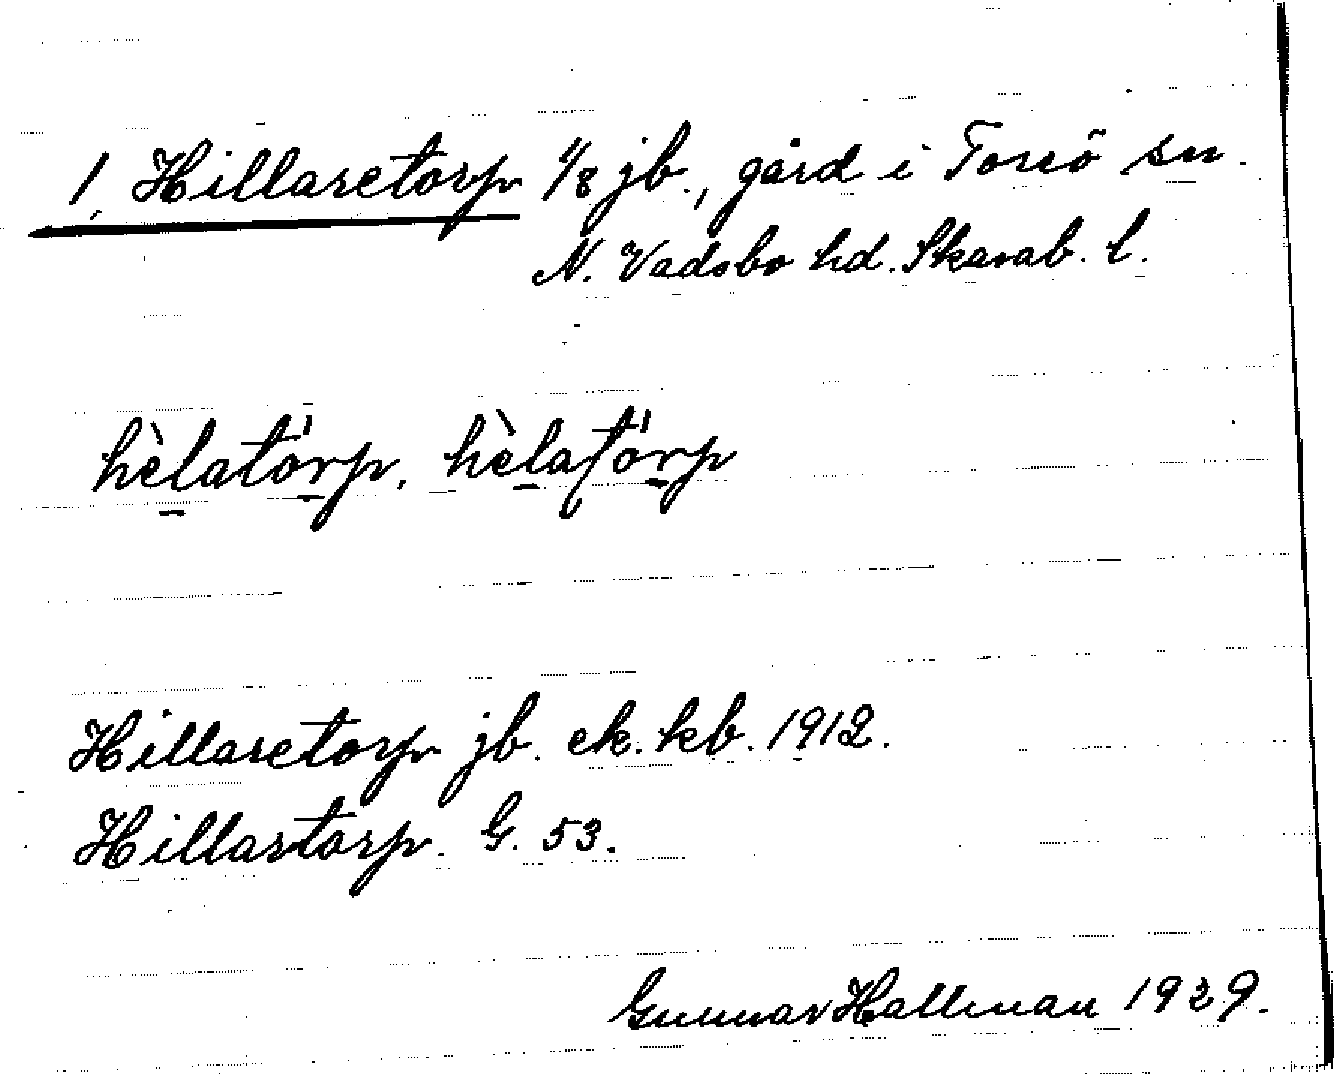 1. Hillaretorp 1/8 jb., gård i Torsö sn.
N. Vadsbo hd. Skarab. l.
hèlatórp, hèlatórp
Hillaretorp jb. ek. kb. 1912.
Hillastorp. G. 53.
Gunnar Hallman 1929.